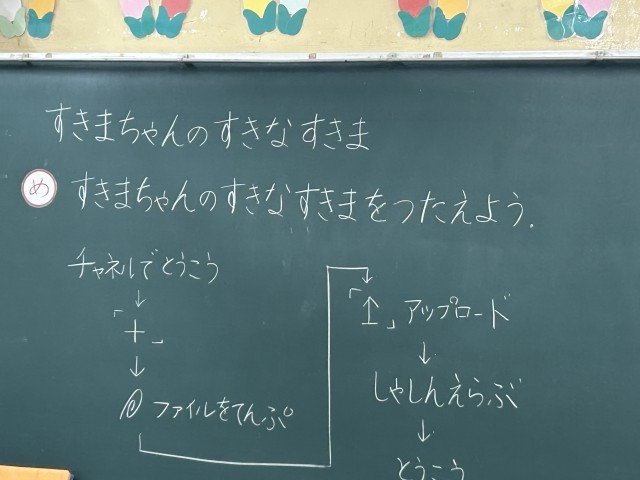 すきまちゃんのすきなすきま
め すきまちゃんのすきなすきまをつたえよう.
チャネルでとうこう
↓
「+」
↓
ファイルをてんぷ
「↑」アップロード
↓
しゃしんえらぶ
↓
とうこう